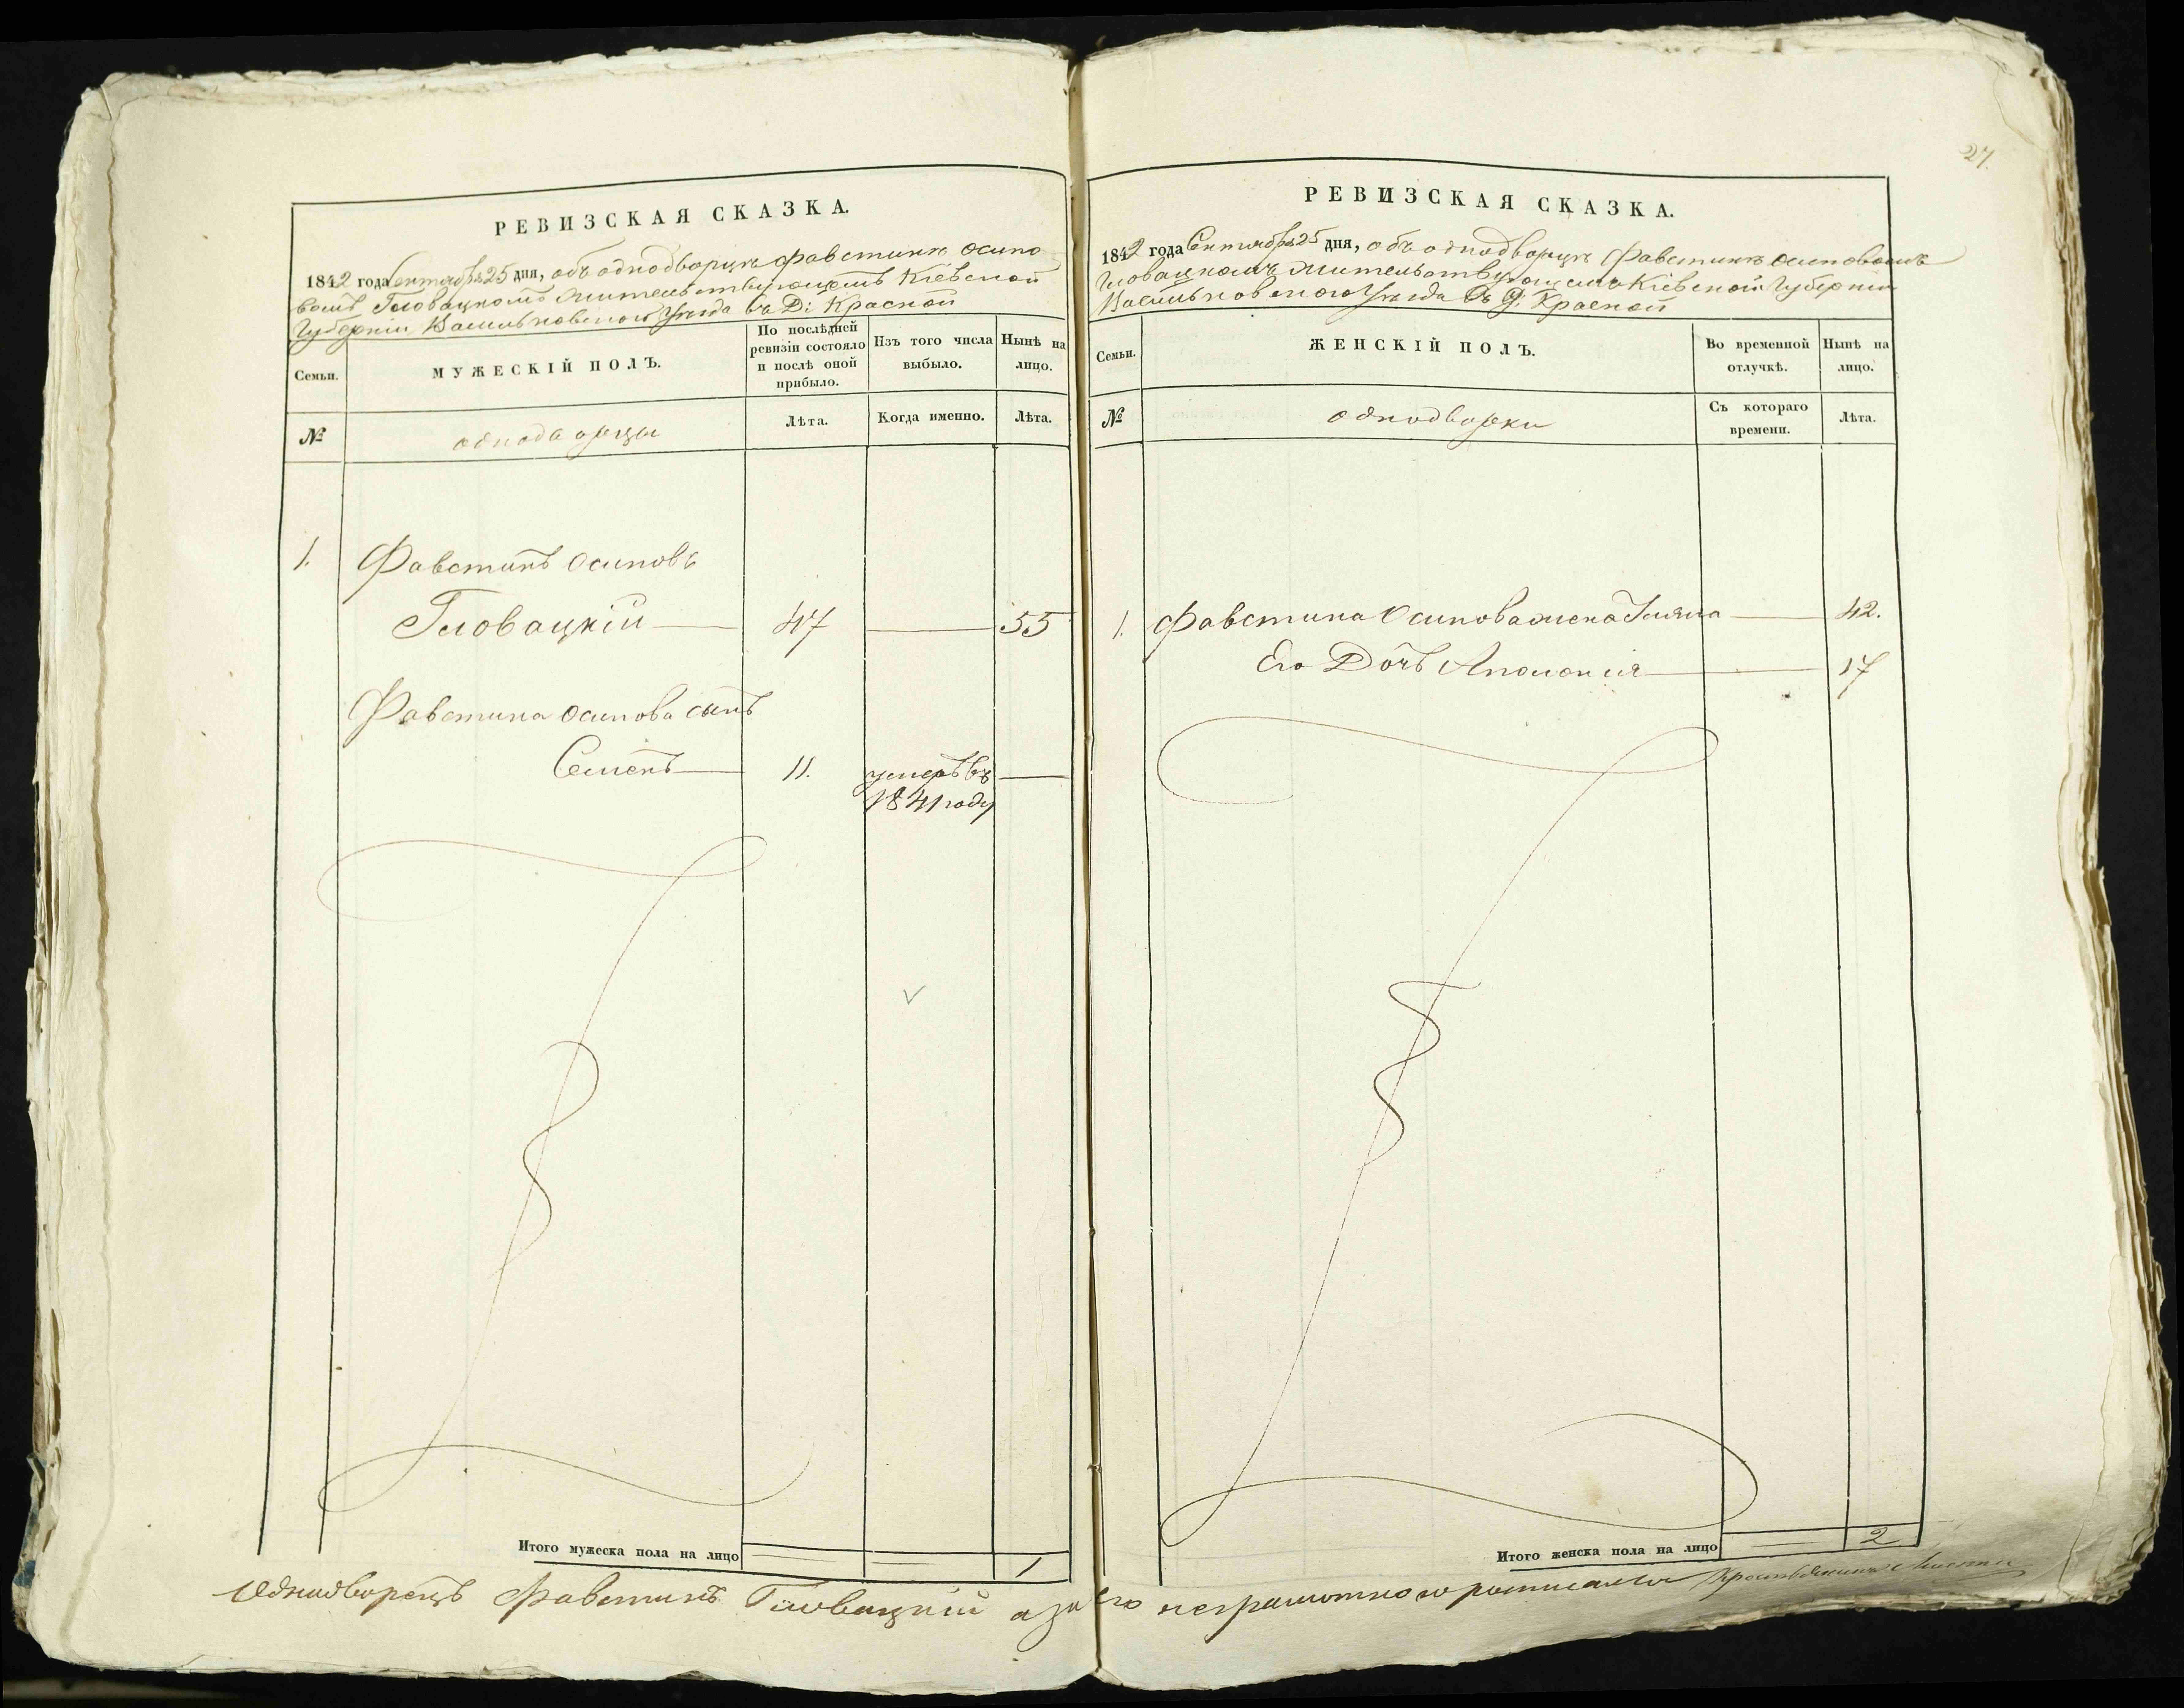 27.
РЕВИЗСКАЯ СКАЗКА.
1842 года Сентября 25 дня, объ однодворцѣ Фавстинѣ Осипо
вомъ Гловацкомъ жительствующемъ Кіевской
Губерніи Васильковского Уѣзда въ Д: Красной
Семьи.
МУЖЕСКІЙ ПОЛЪ.
По послѣдней
ревизіи состояло
и послѣ оной
прибыло.
Изъ того числа
выбыло.
Нынѣ на
лицо.
№
однодворцы
Лѣта.
Когда именно.
Лѣта.
1. Фавстинъ Осиповъ
Гловацкій 47 55
Фавстина Осипова сынъ
Семенъ 11. умеръ въ
1841 году
Итого мужеска пола на лицо 1
РЕВИЗСКАЯ СКАЗКА.
1842 года Сентября 25 дня, объ однодворцѣ Фавстинѣ Осиповомъ
Гловацкомъ жительствующемъ Кіевской Губерніи
Васильковского Уѣзда въ Д: Красной
Семьи.
ЖЕНСКІЙ ПОЛЪ.
Во временной
отлучкѣ.
Нынѣ на
лицо.
№
однодворки
Съ котораго
времени.
Лѣта.
1. Фавстина Осипова жена 42.
Его Дочь Аполонія 17
Итого женска пола на лицо 2
Однодворецъ Фавстинъ Гловацкій а за его неграмотного росписался